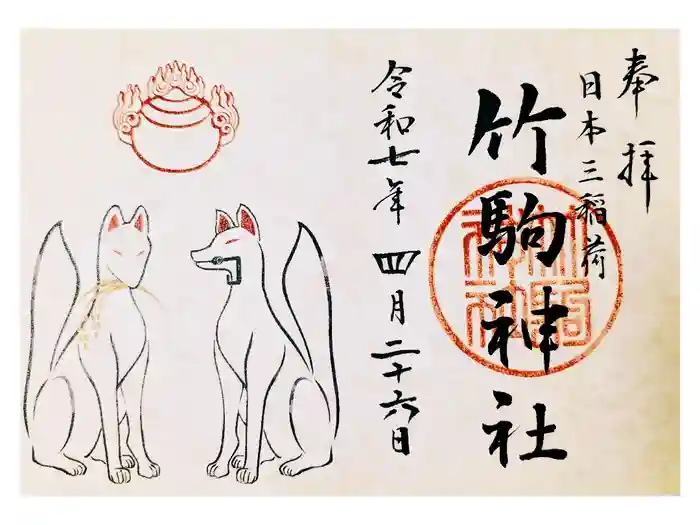 奉拝
日本三稲荷
竹駒神社
令和七年四月二十六日